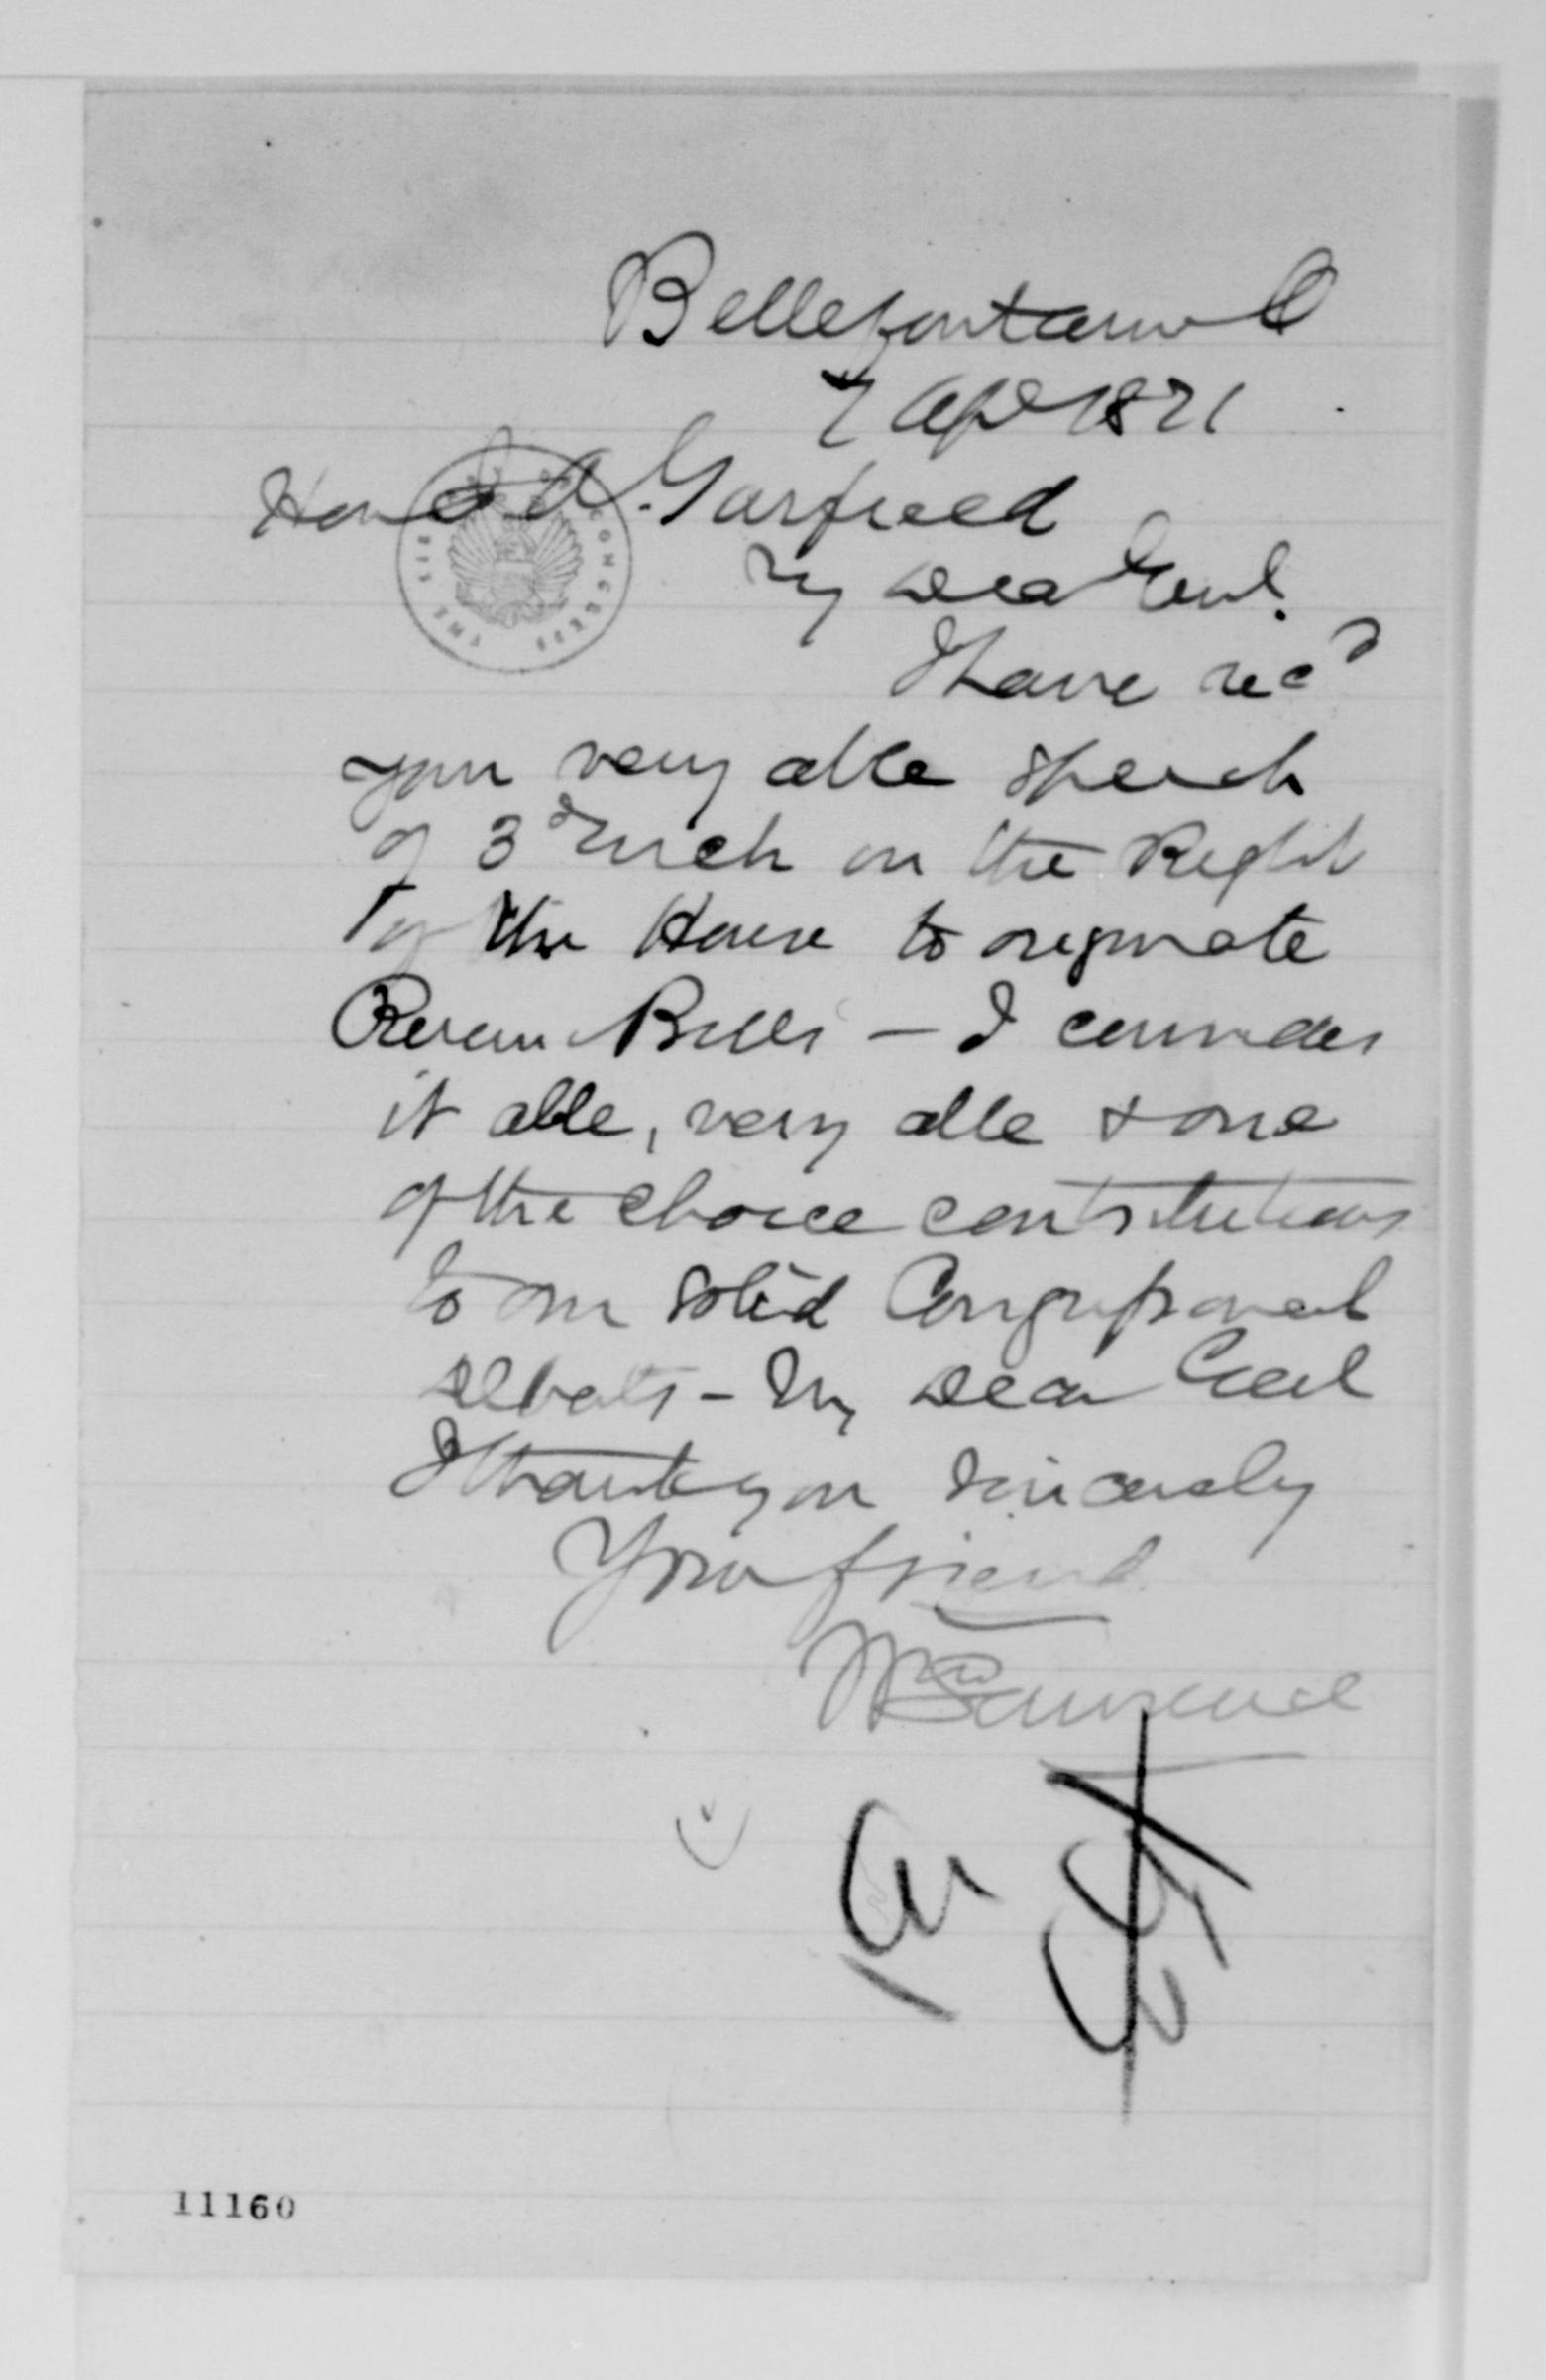 Bellefontaine O
7 Apl 1871
Hon J A. Garfield
My Dear Genl.
I have recd
your very able speech
of 3d March on the Right
of the House to originate
Revenue Bills — I consider
it able, very able & one
of the choice contributions
to our solid Congressional
debates - My Dear Genl
I thank you sincerely
Your friend
Wm Lawrence
11160